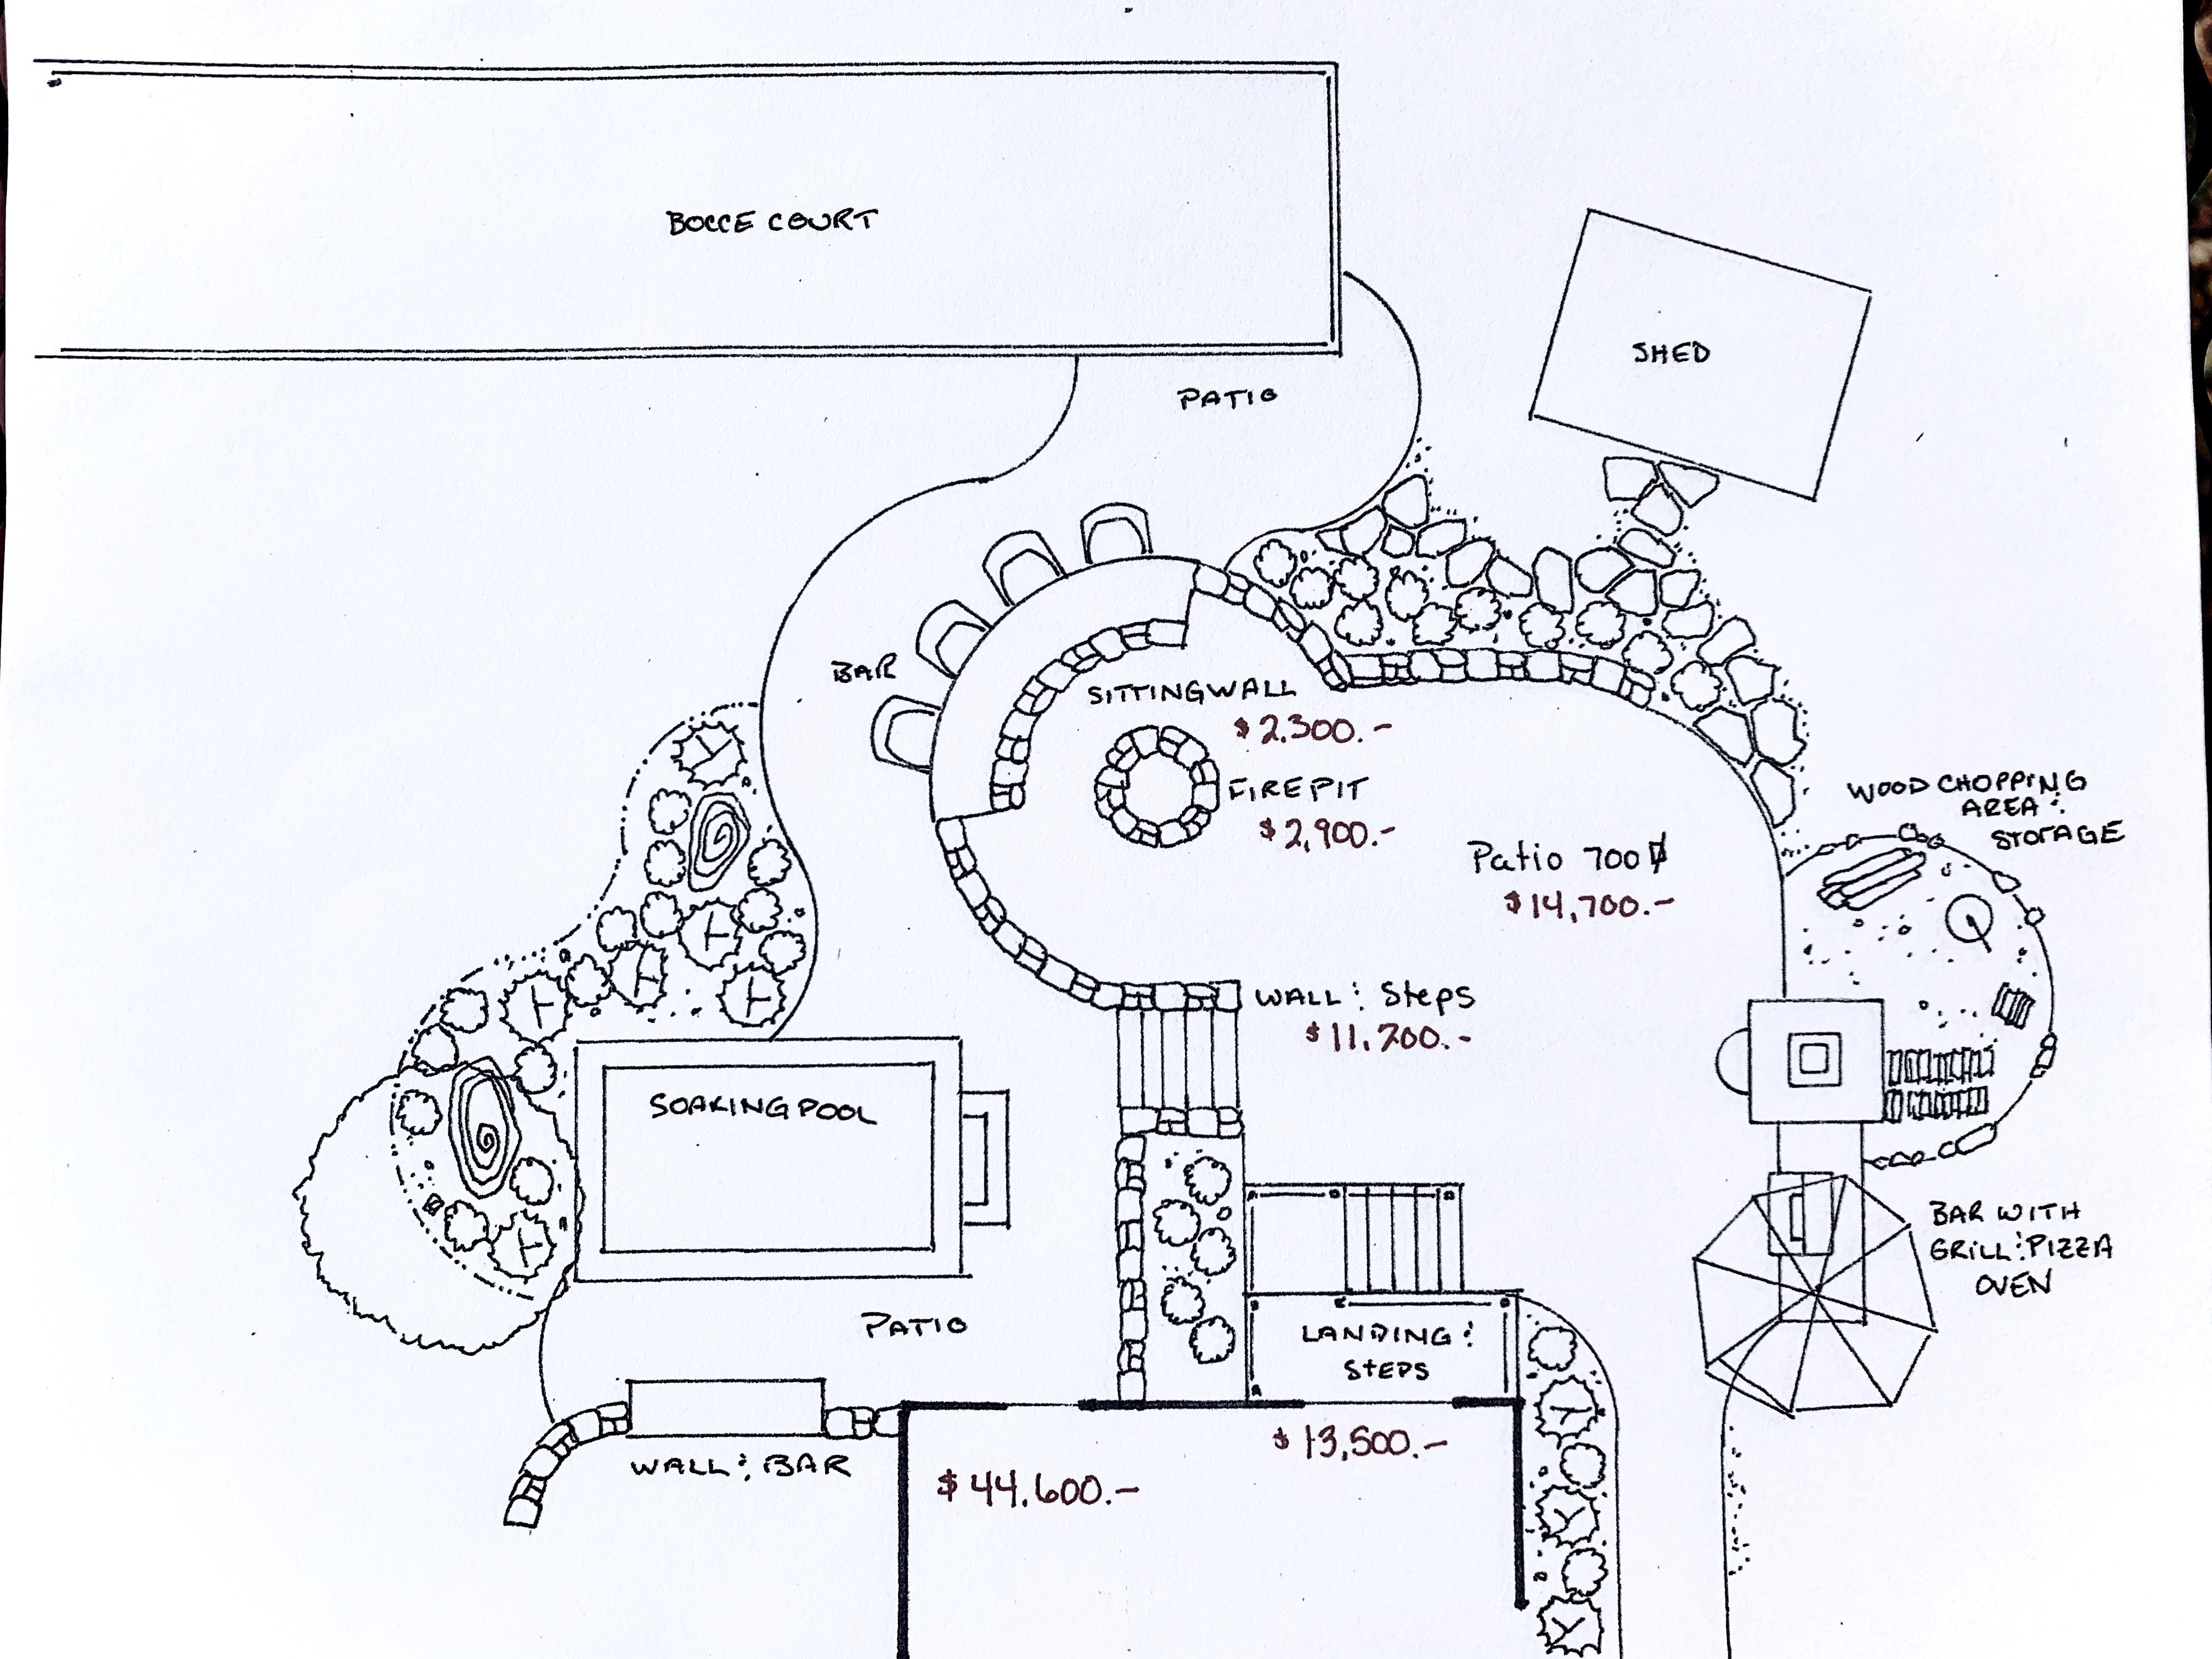 BOCCE COURT
SHED
PATIO
BAR
SITTING WALL
$2,300.-
FIREPIT
$2,900.-
Patio 700
$14,700.-
WOOD CHOPPING
AREA &
STORAGE
WALL & Steps
$11,200.-
SOAKING POOL
BAR WITH
GRILL & PIZZA
OVEN
PATIO
LANDING &
STEPS
WALL & BAR
$13,500.-
$44,600.-